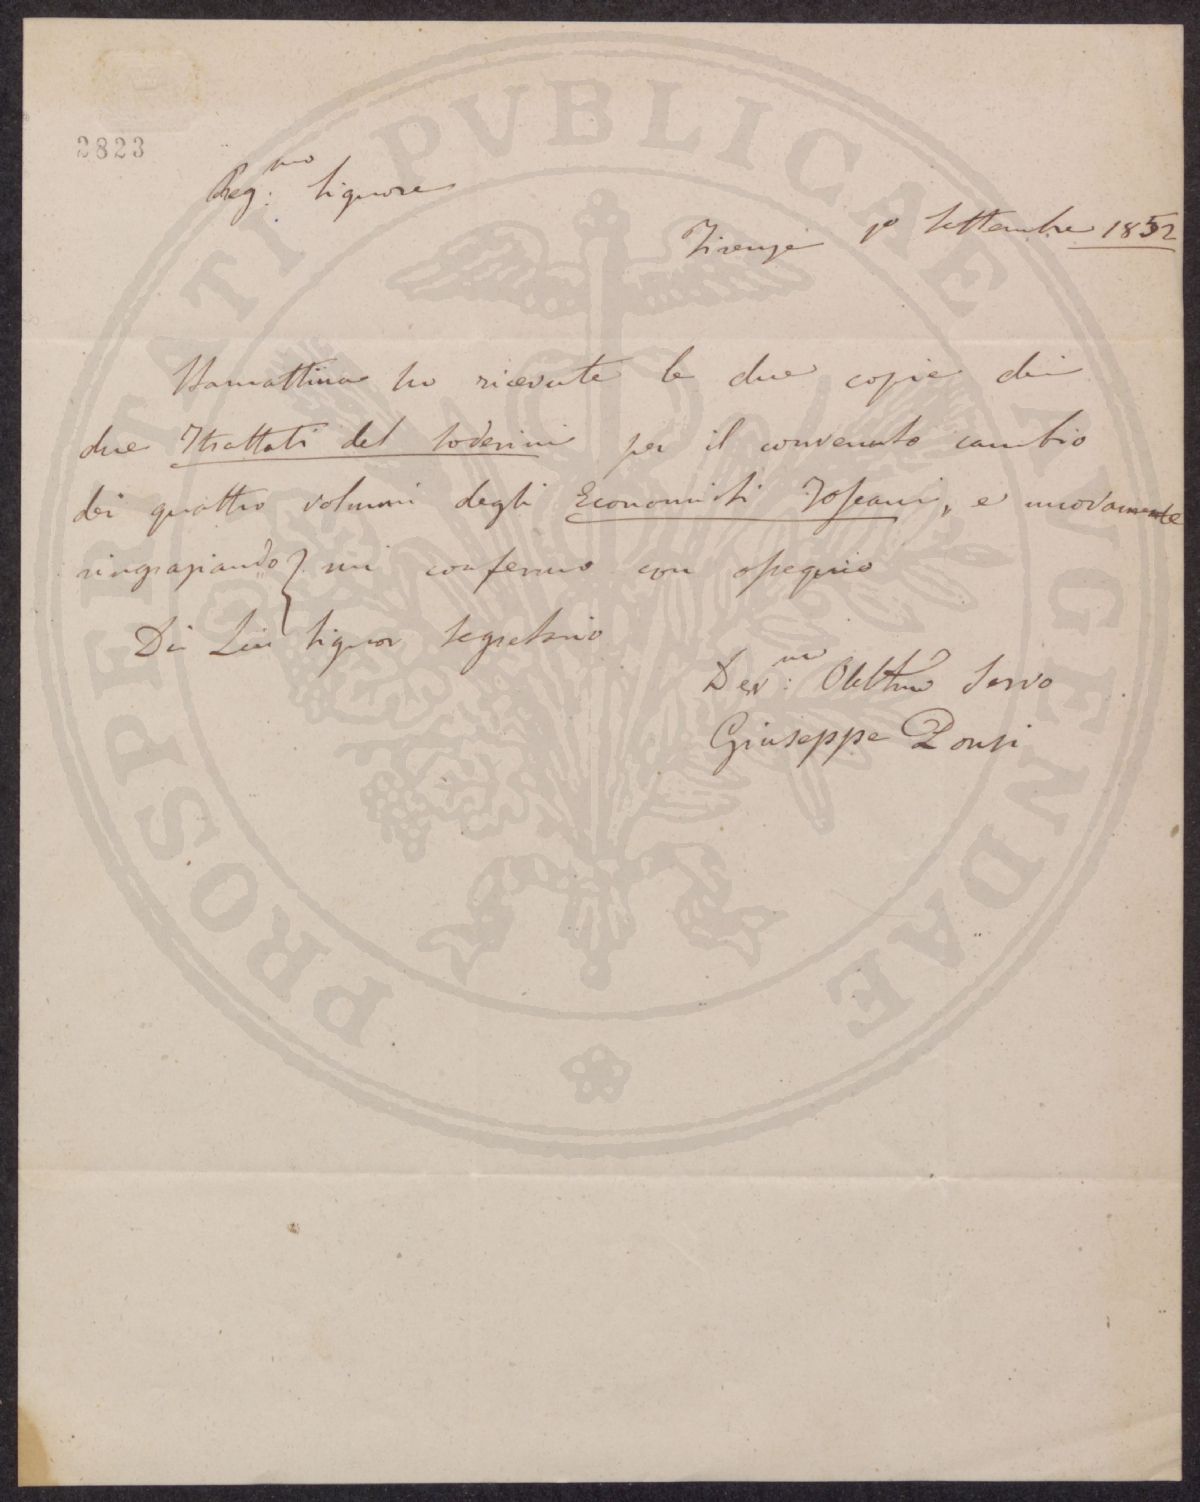 2823
Preg.mo Signore
Firenze 1º Settembre 1852
Stamattina ho ricevute le due copie dei
due Trattati del Soderini per il convenuto cambio
dei quattro volumi degli Economisti Toscani, e nuovamente
ringraziando mi confermo con ossequio
Di Lei Signor Segretario
Dev.mo Obbl.mo Servo
Giuseppe Ponsi
PROSPERITATI PVBLICAE AVGENDAE